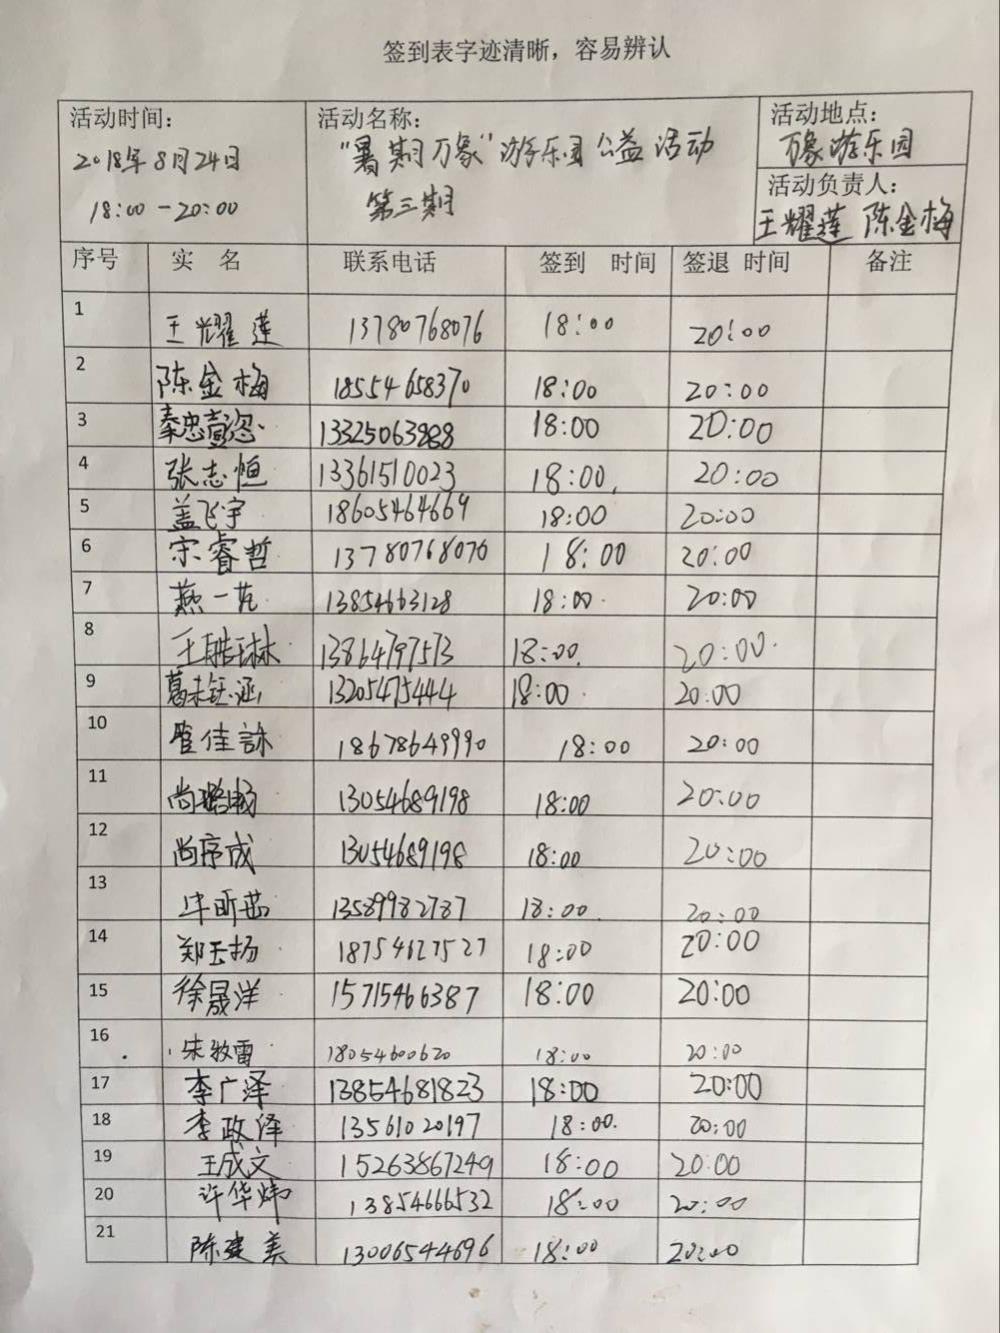 签到表字迹清晰，容易辨认
活动时间：
2018年8月24日
18:00-20:00
活动名称：
"暑期万象"游乐园公益活动
第三期
活动地点：
万象游乐园
活动负责人：
王耀莲 陈金梅
序号 实 名 联系电话 签到 时间 签退 时间 备注
1 王耀莲 13780768076 18:00 20:00
2 陈金梅 18554658370 18:00 20:00
3 13325063888 18:00 20:00
4 张志恒 13361510023 18:00 20:00
5 盖飞宇 18605464669 18:00 20:00
6 宋睿哲 13780768076 18:00 20:00
7 燕一范 13854663128 18:00 20:00
8 王皓琳 13864797573 18:00 20:00
9 葛未钰涵 13205475444 18:00 20:00
10 管佳 18678649990 18:00 20:00
11 尚璐畅 13054689198 18:00 20:00
12 尚序成 13054689198 18:00 20:00
13 牛昕茹 13589982787 18:00 20:00
14 郑玉扬 18754627527 18:00 20:00
15 徐晟洋 15715466387 18:00 20:00
16 宋牧雷 18054600620 18:00 20:00
17 李广泽 13854681823 18:00 20:00
18 李政泽 13561020197 18:00 20:00
19 王成文 15263867249 18:00 20:00
20 许华炜 13854666532 18:00 20:00
21 陈建美 13006544696 18:00 20:00